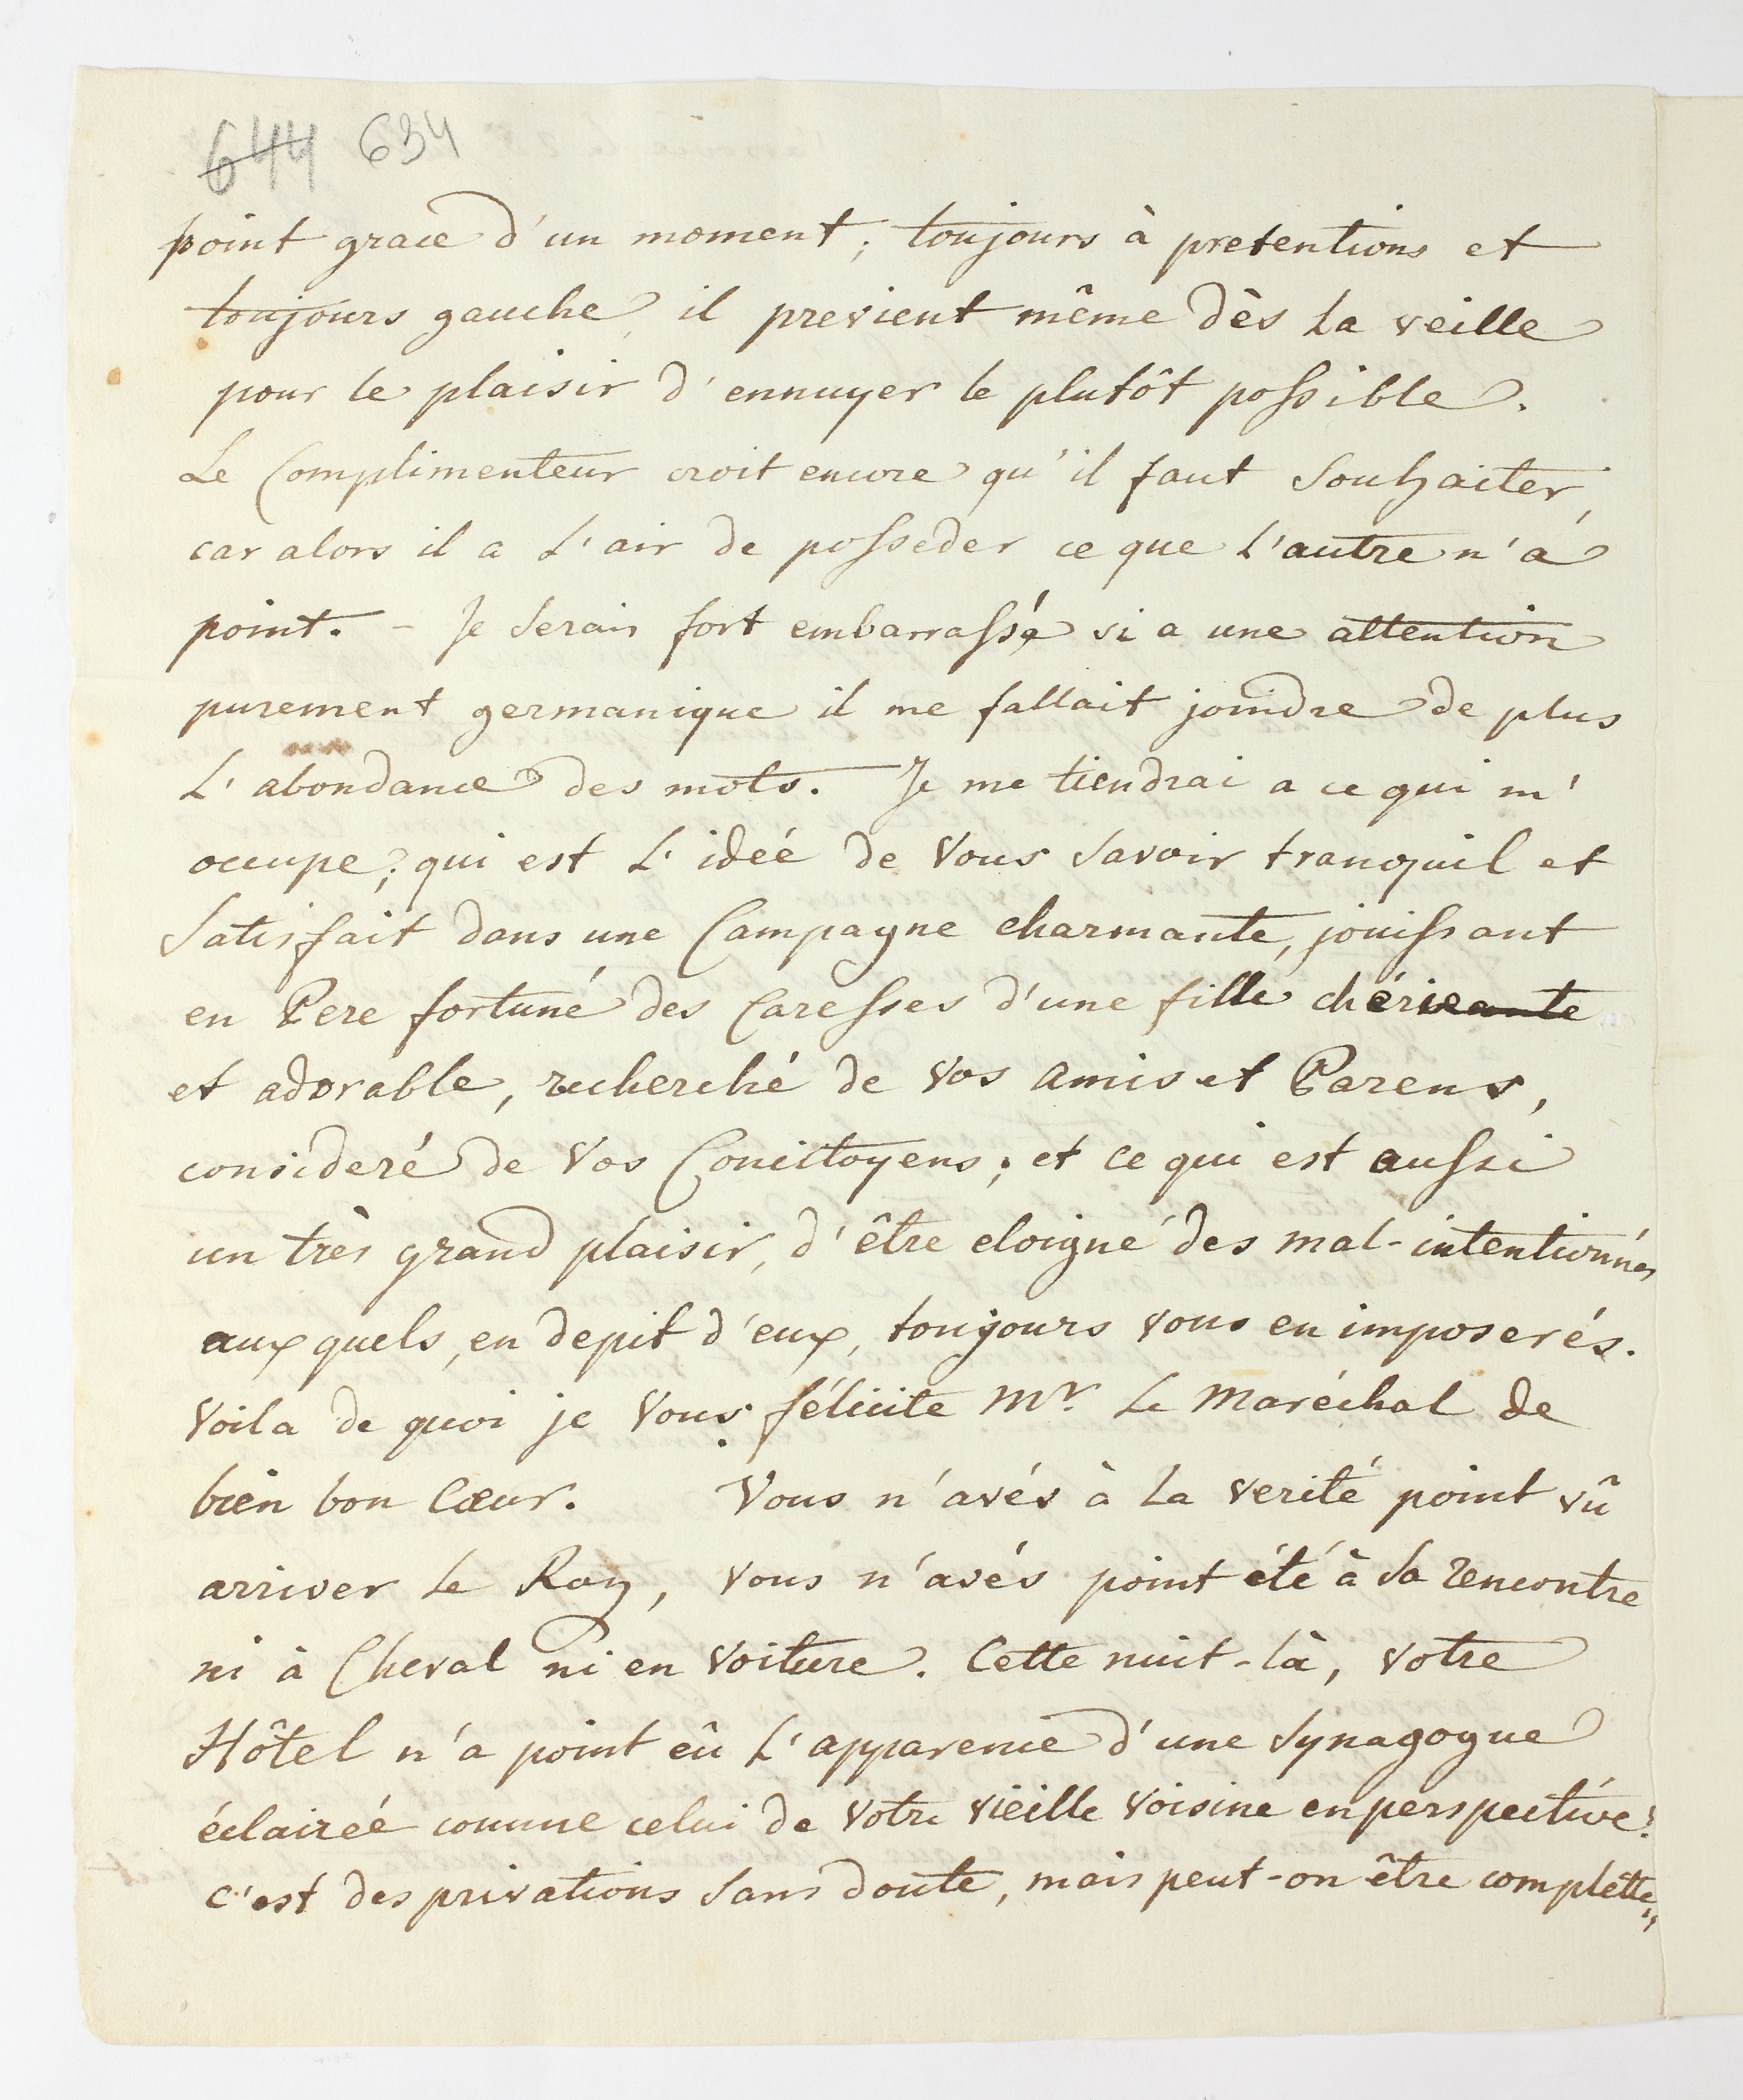 644 634
point grace d'un moment; toujours à pretentions et
toujours gauche, il previent même dès la veille
pour le plaisir d'ennuyer le plutôt possible.
Le Complimenteur croit encore qu'il faut Souhaiter,
car alors il a L'air de posseder ce que L'autre n'a
point. - Je Serais fort embarrassé si a une attention
purement germanique il me fallait joindre de plus
L'abondance des mots. Je me tiendrai a ce qui m'
occupe; qui est L'ideé de Vous Savoir tranquil et
Satisfait dans une Campagne charmante, jouissant
en Pere fortuné des Caresses d'une fille chérie
et adorable, recherché de vos amis et Parens,
consideré de Vos Concitoyens; et ce qui est aussi
un très grand plaisir, d'être eloigné des mal-intentionnés
aux quels, en depit d'eux, toujours vous en imposerés.
Voila de quoi je Vous félicite Mr. Le Maréchal de
bien bon Cœur. Vous n'avés à La verité point vû
arriver Le Roy, vous n'avés point été à Sa rencontre
ni à Cheval ni en Voiture. Cette nuit-là, Votre
Hôtel n'a point eû L'apparence d'une Synagogue
éclaireé comme celui de Votre vieille Voisine en perspective:
c'est des privations Sans doute, mais peut-on être complette„